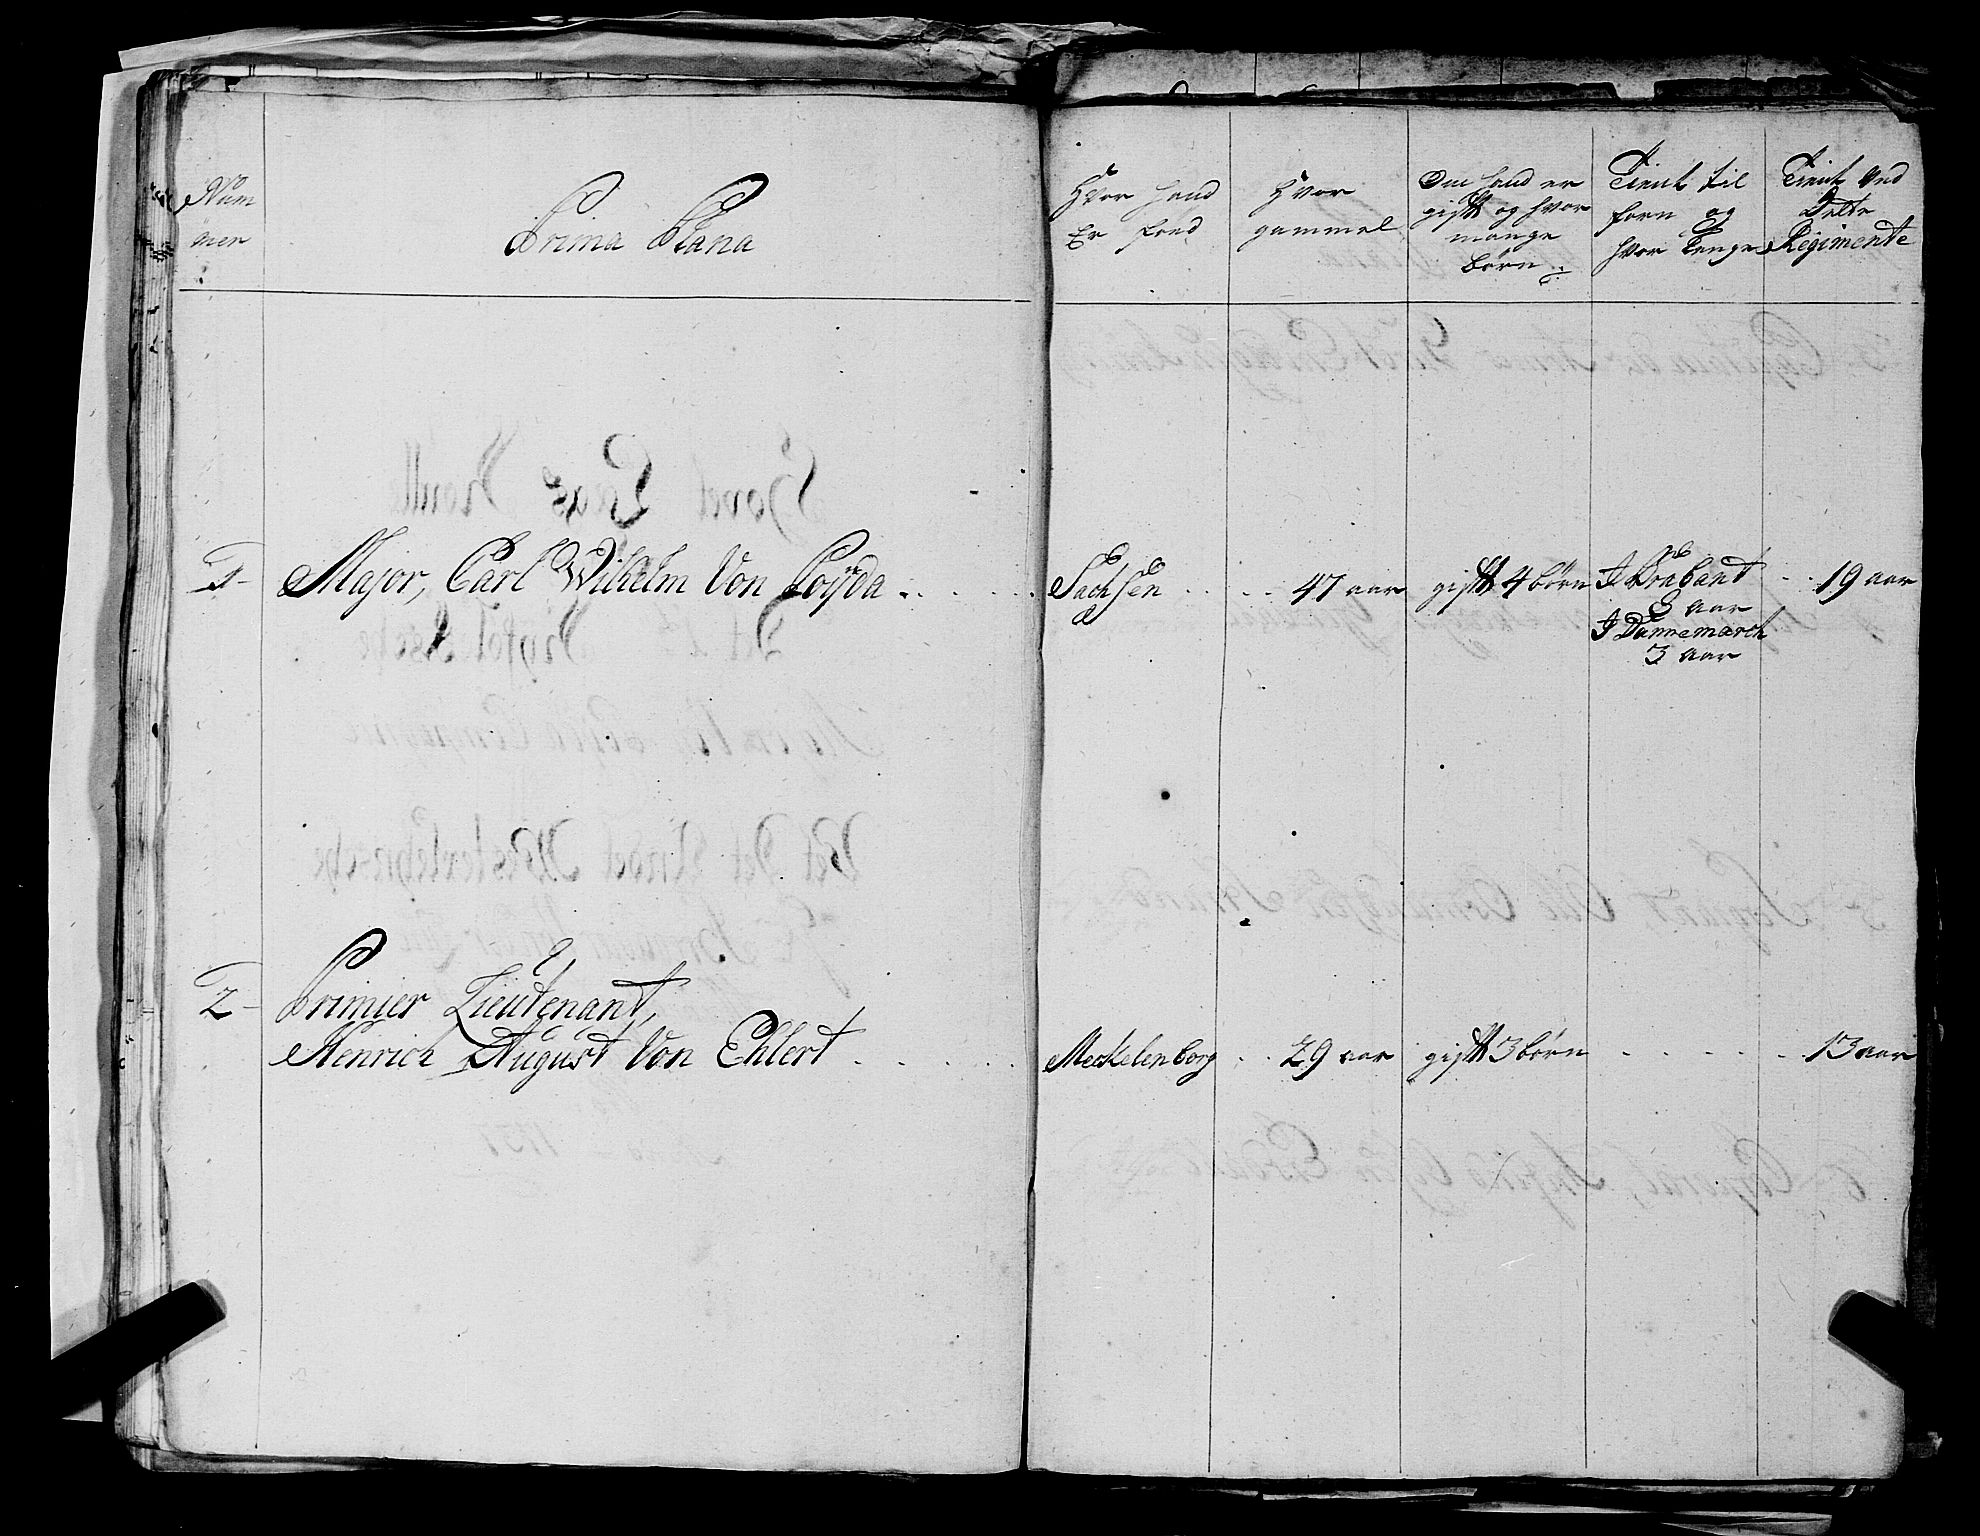 Num
mer
Prima Plana
Hvor hand
Er född
Hvor
gammel
Om hand er
gift og hvor
mange
börn
Tient til
forn og
hvor Lenge
Tient Ved
Dette
Regimente
1 - Major, Carl Wilhelm Von Coijda
Sachsen
47 aar
gift 4 börn
I Brabant
8 aar
I Dannemarck
3 aar
19 aar
2 - Primier Lieutenant,
Henrich August Von Ehlert
Meckelenborg
29 aar
gift 3 börn
13 aar